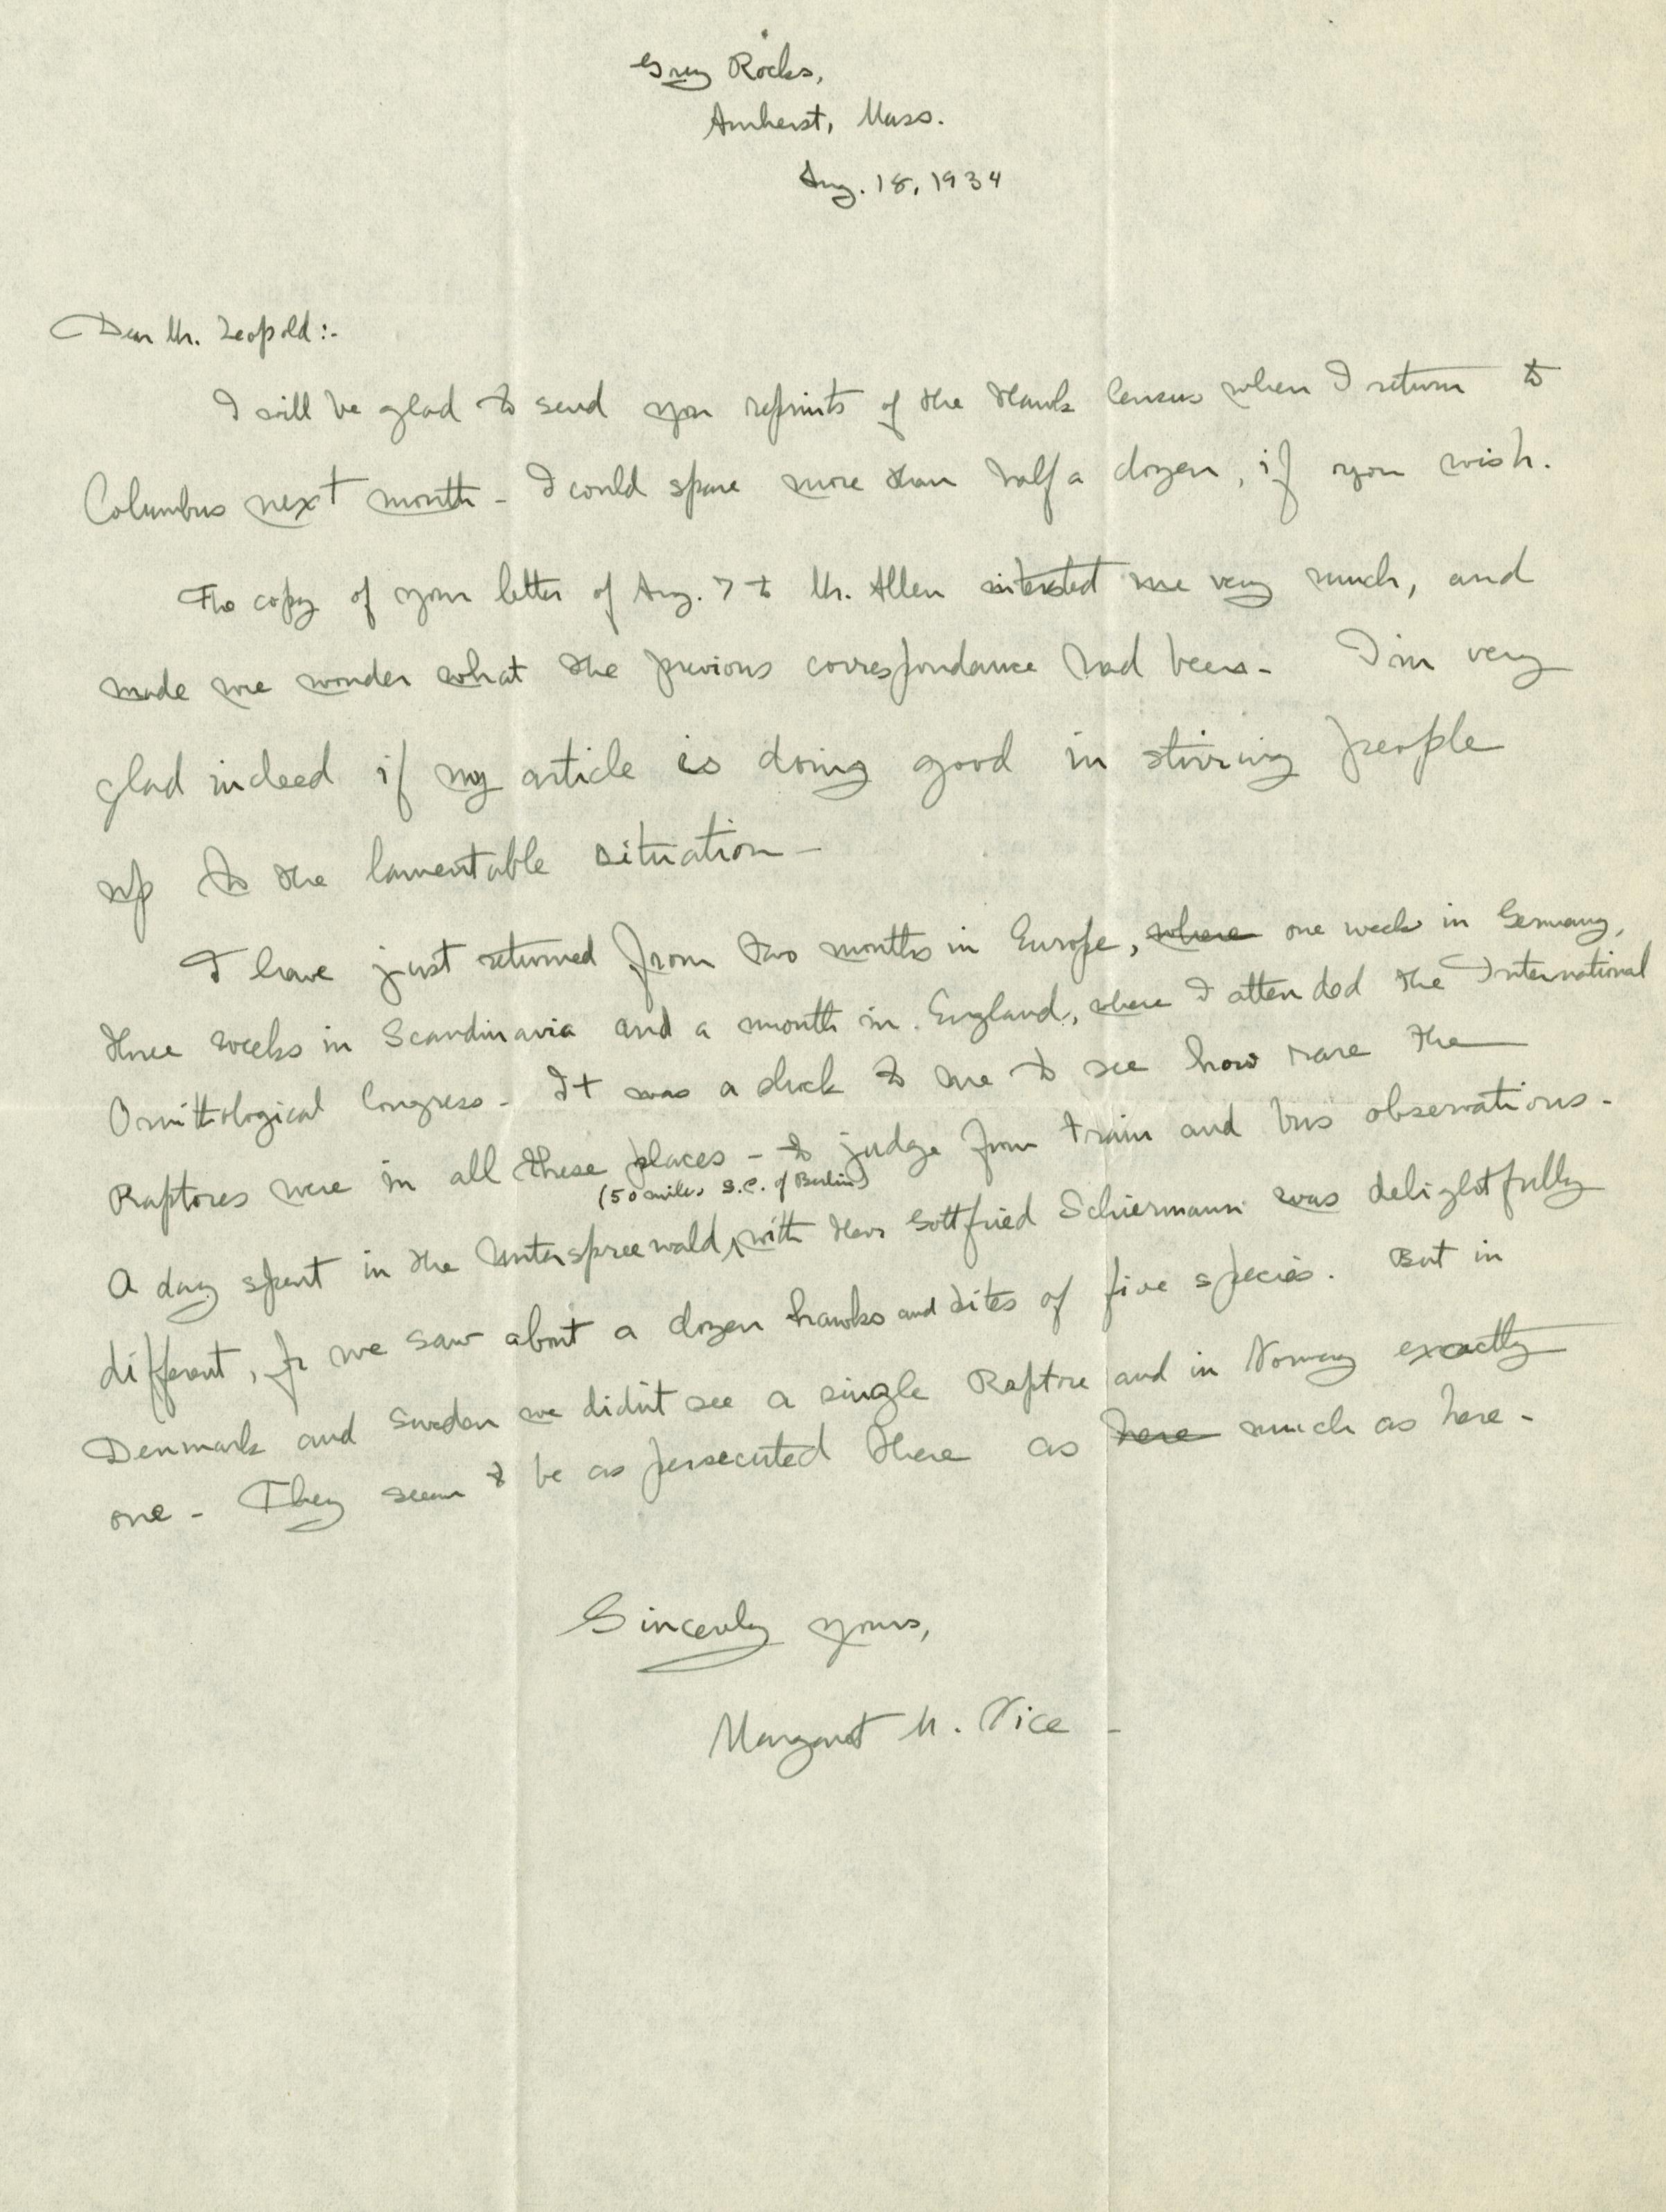 Grey Rocks,
Amherst, Mass.
Aug. 18, 1934
Dear Mr. Leopold:-
I will be glad to send you reprints of the Hawk Census when I return to
Columbus next month - I could spare more than half a dozen, if you wish.
The copy of your letter of Aug. 7 to Mr. Allen interested me very much, and
made me wonder what the previous correspondance had been - I'm very
glad indeed if my article is doing good in stirring people
up to the lamentable situation -
I have just returned from two months in Europe, where one week in Germany,
three weeks in Scandinavia and a month in England, where I attended the International
Ornithological Congress - It was a shock to me to see how rare the
Raptores were in all these places - to judge from train and bus observations -
(50 miles S.E. of Berlin)
A day spent in the Unterspreewald, with Herr Gottfried Schiermann was delightfully
different, for we saw about a dozen hawks and kites of five species. But in
Denmark and Sweden we didn't see a single Raptore and in Norway exactly
one - They seem to be as persecuted there as here much as here -
Sincerely yours,
Margaret M. Nice -